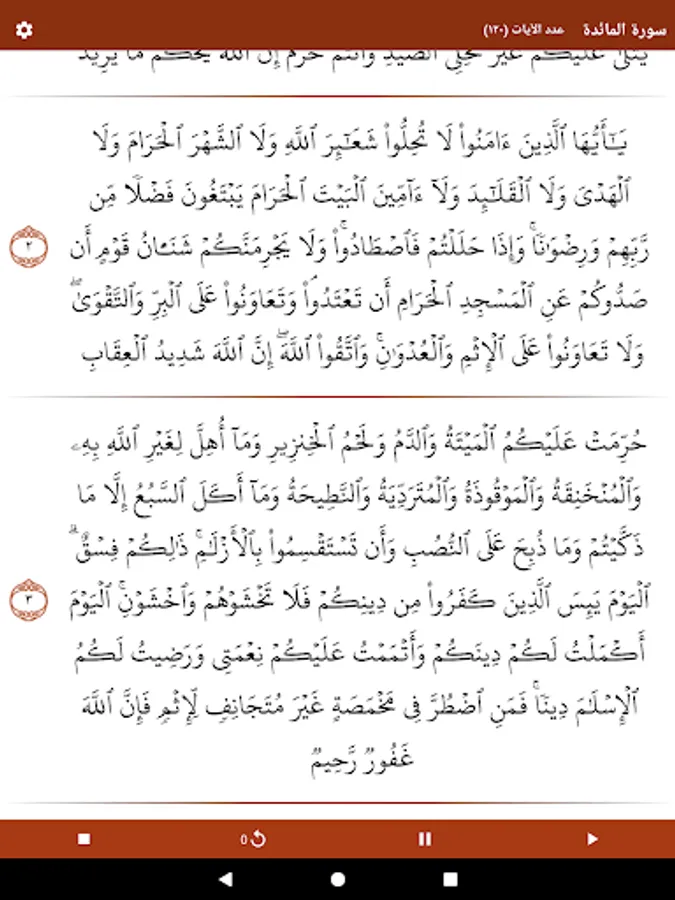 سورة المائدة عدد الآيات (١٢٠)
يُتْلَىٰ عَلَيْكُمْ غَيْرَ مُحِلِّى ٱلصَّيْدِ وَأَنتُمْ حُرُمٌ إِنَّ ٱللَّهَ يَحْكُمُ مَا يُرِيدُ
يَٰٓأَيُّهَا ٱلَّذِينَ ءَامَنُوا۟ لَا تُحِلُّوا۟ شَعَٰٓئِرَ ٱللَّهِ وَلَا ٱلشَّهْرَ ٱلْحَرَامَ وَلَا
ٱلْهَدْىَ وَلَا ٱلْقَلَٰٓئِدَ وَلَآ ءَآمِّينَ ٱلْبَيْتَ ٱلْحَرَامَ يَبْتَغُونَ فَضْلًا مِّن
رَّبِّهِمْ وَرِضْوَٰنًا ۚ وَإِذَا حَلَلْتُمْ فَٱصْطَادُوا۟ ۚ وَلَا يَجْرِمَنَّكُمْ شَنَـَٔانُ قَوْمٍ أَن
٢
صَدُّوكُمْ عَنِ ٱلْمَسْجِدِ ٱلْحَرَامِ أَن تَعْتَدُوا۟ ۘ وَتَعَاوَنُوا۟ عَلَى ٱلْبِرِّ وَٱلتَّقْوَىٰ ۖ
وَلَا تَعَاوَنُوا۟ عَلَى ٱلْإِثْمِ وَٱلْعُدْوَٰنِ ۚ وَٱتَّقُوا۟ ٱللَّهَ ۖ إِنَّ ٱللَّهَ شَدِيدُ ٱلْعِقَابِ
حُرِّمَتْ عَلَيْكُمُ ٱلْمَيْتَةُ وَٱلدَّمُ وَلَحْمُ ٱلْخِنزِيرِ وَمَآ أُهِلَّ لِغَيْرِ ٱللَّهِ بِهِۦ
وَٱلْمُنْخَنِقَةُ وَٱلْمَوْقُوذَةُ وَٱلْمُتَرَدِّيَةُ وَٱلنَّطِيحَةُ وَمَآ أَكَلَ ٱلسَّبُعُ إِلَّا مَا
ذَكَّيْتُمْ وَمَا ذُبِحَ عَلَى ٱلنُّصُبِ وَأَن تَسْتَقْسِمُوا۟ بِٱلْأَزْلَٰمِ ۚ ذَٰلِكُمْ فِسْقٌ ۗ
ٱلْيَوْمَ يَئِسَ ٱلَّذِينَ كَفَرُوا۟ مِن دِينِكُمْ فَلَا تَخْشَوْهُمْ وَٱخْشَوْنِ ۚ ٱلْيَوْمَ
٣
أَكْمَلْتُ لَكُمْ دِينَكُمْ وَأَتْمَمْتُ عَلَيْكُمْ نِعْمَتِى وَرَضِيتُ لَكُمُ
ٱلْإِسْلَٰمَ دِينًا ۚ فَمَنِ ٱضْطُرَّ فِى مَخْمَصَةٍ غَيْرَ مُتَجَانِفٍ لِّإِثْمٍ ۙ فَإِنَّ ٱللَّهَ
غَفُورٌ رَّحِيمٌ
0